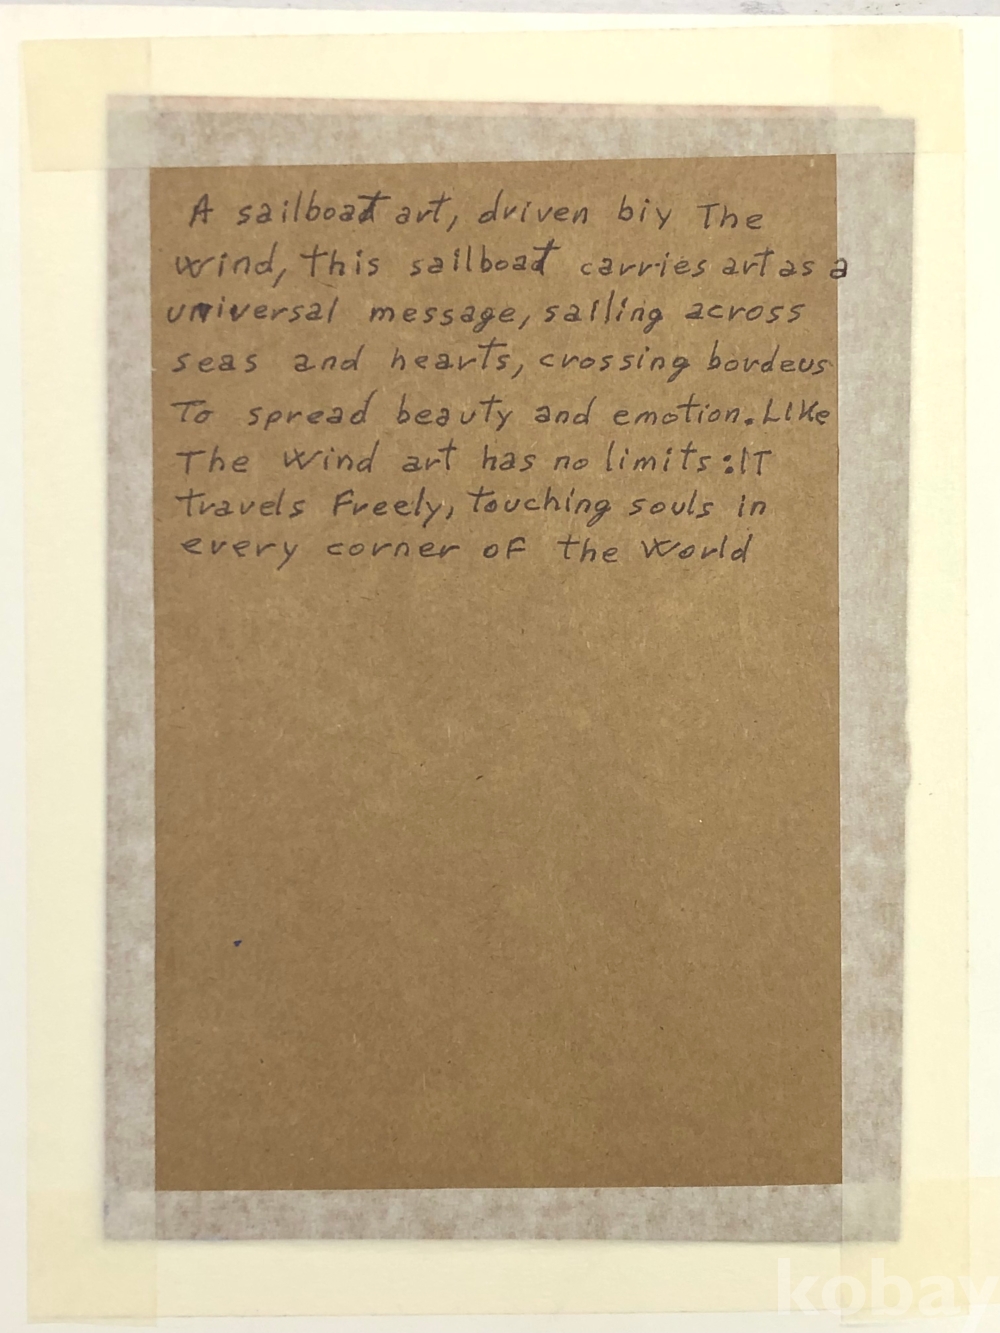 A sailboat art, driven biy The
wind, this sailboat carries art as a
universal message, sailing across
seas and hearts, crossing borders
To spread beauty and emotion. Like
The wind art has no limits: IT
travels Freely, touching souls in
every corner oF the world
kobay